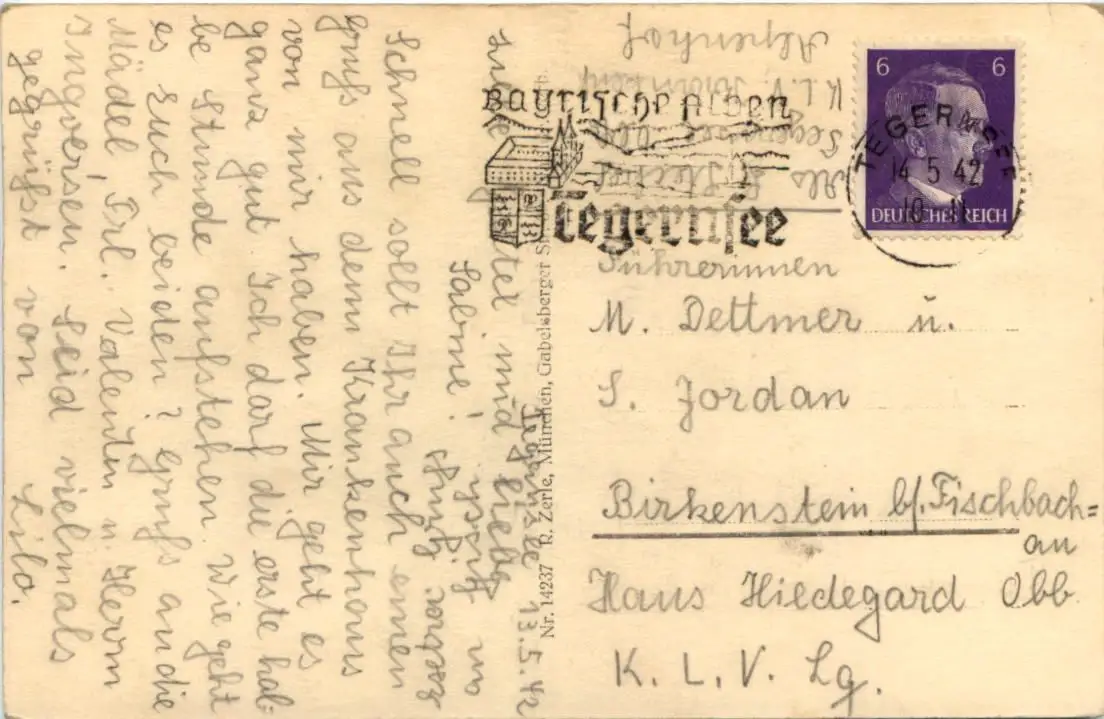 Tegernsee 13.5.42
und liebe
Sabine!
Schnell sollt Ihr auch einen
Gruß aus dem Krankenhaus
von mir haben. Mir geht es
ganz gut. Ich darf die erste hal=
be Stunde aufstehen. Wie geht
es Euch beiden? Gruß an die
Mädel, Frl. Valentin u. Herrn
Ingversen. Seid vielmals
gegrüßt von Lilo.
Nr. 14237 R. Zerle, München, Gabelsberger St
Tegernsee Obb.
K.L.V.
Alpenhof
Bayrische Alpen
Tegernsee
6 6
DEUTSCHES REICH
TEGERNSEE
14 5 42
Führerinnen
M. Dettmer u.
S. Jordan
Birkenstein b/. Fischbach=
au
Haus Hildegard Obb.
K. L. V. Lg.